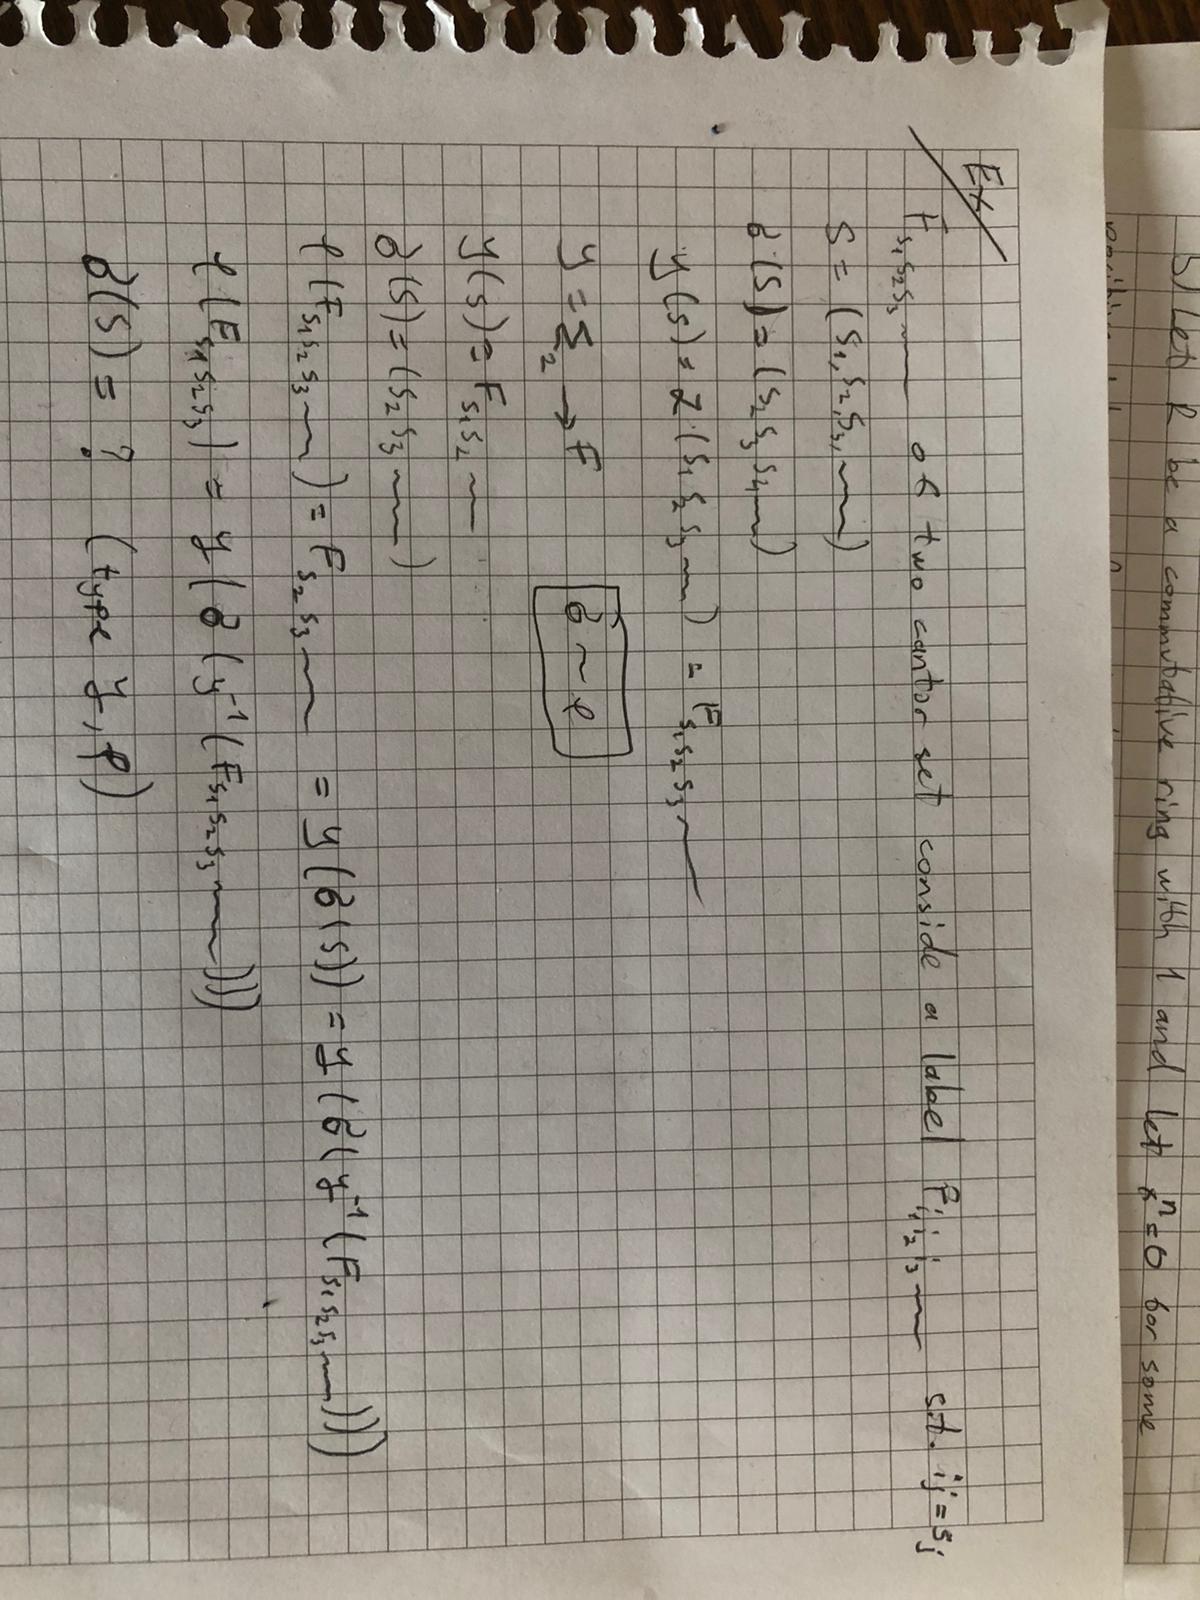 5) Let R be a commutative ring with 1 and let x^n = 0 for some
Ex/
F_{s₁s₂s₃}~ of two cantor set conside a label P_{i₁i₂i₃}~ s.t. ij = sj
S = (s₁, s₂, s₃, ~)
∂(S) = (s₂ s₃ s₄ ~)
y(s) = Z(s₁ s₂ s₃ ~) = F_{s₁s₂s₃}~
y = Σ₂ → F
∂ ~ φ
y(s) = F_{s₁s₂}~
∂(S) = (s₂ s₃ ~)
φ(F_{s₁s₂s₃}~) = F_{s₂s₃}~ = y(∂(s)) = y(∂(y⁻¹(F_{s₁s₂s₃}~)))
φ(F_{s₁s₂s₃}) = y(∂(y⁻¹(F_{s₁s₂s₃}~)))
∂(S) = ? (type y, φ)